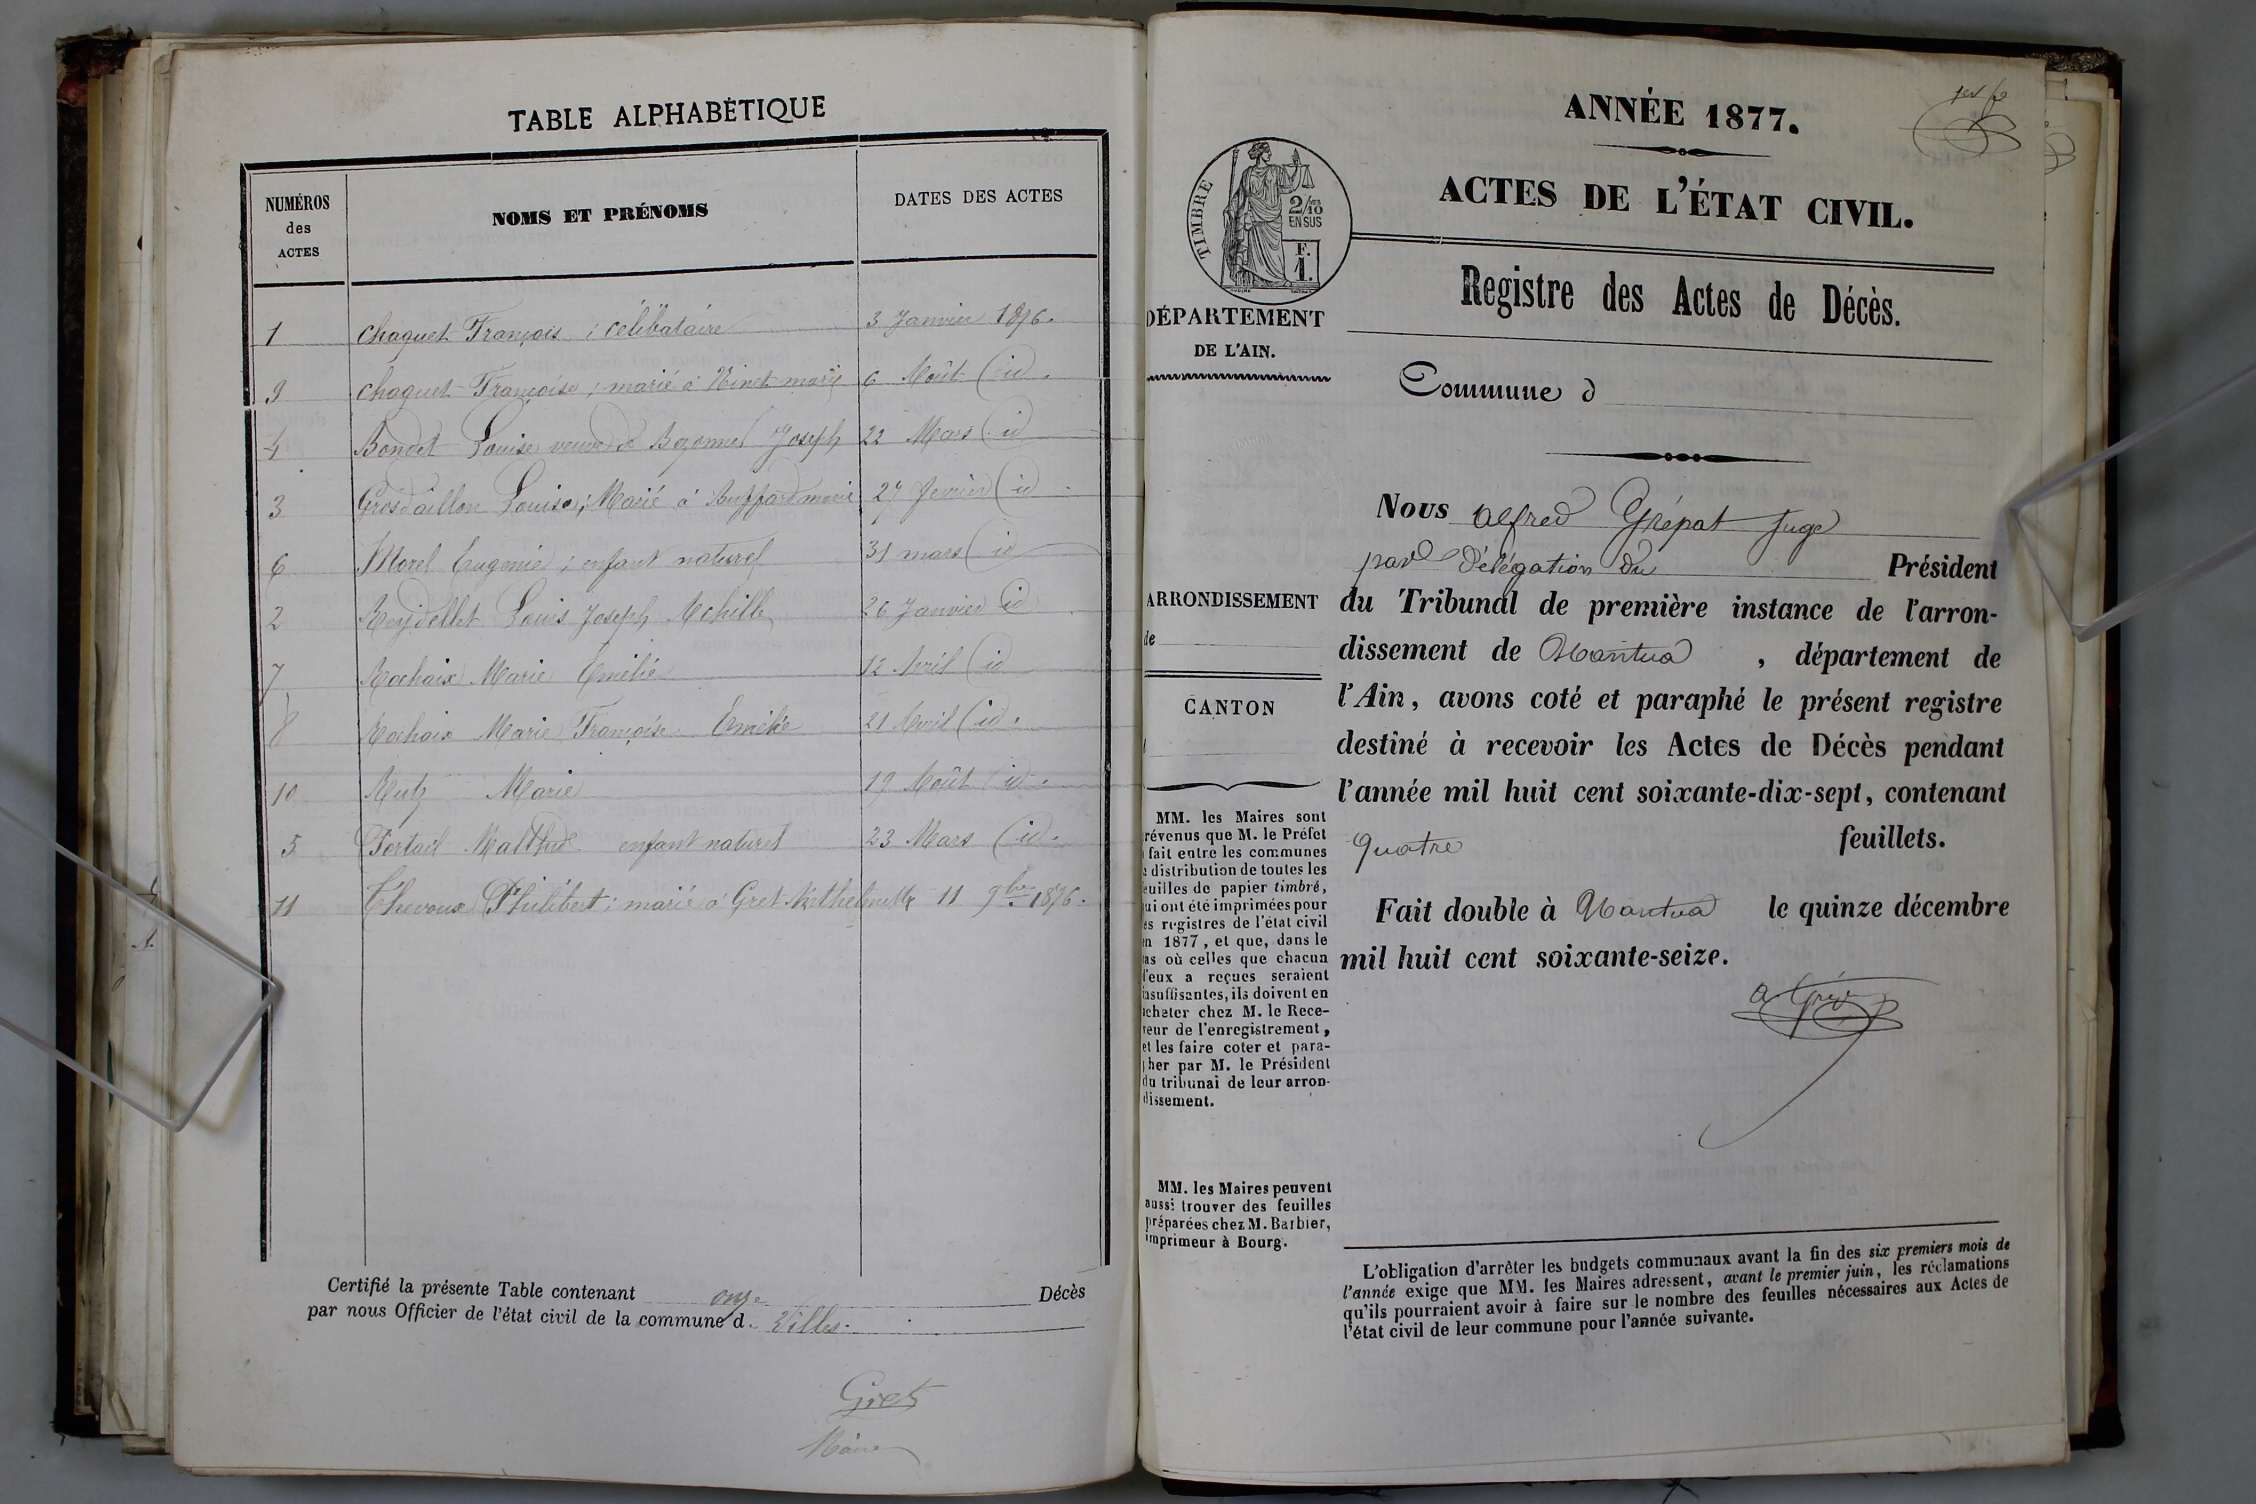 TABLE ALPHABÉTIQUE
NUMÉROS des ACTES
NOMS ET PRÉNOMS
DATES DES ACTES
1 Chaquet François ; célibataire 3 Janvier 1876.
9 Chaquet Françoise ; marié à Vinet mary 6 Août (id.
4 Bondet Louise veuve de Bozonnet Joseph 22 Mars (id
3 Grosdaillon Louise ; Marié à Buffard marie 27 fevrier (id
6 Morel Eugenie ; enfant naturel 31 mars (id
2 Reydellet Louis Joseph Achille 26 Janvier id
7 Rochaix Marie Emélie 12 Avril (id
8 Rochaix Marie Françoise Emélie 21 Avril (id.
10 Rutz Marie 19 Août (id.
5 enfant naturel 23 Mars (id.
11 Thevoux Philibert ; marié à Gret 11 9bre 1876.
Certifié la présente Table contenant onze Décès
par nous Officier de l'état civil de la commune d. Villes.
Gret
Maire
ANNÉE 1877.
ACTES DE L'ÉTAT CIVIL.
TIMBRE
2/10 EN SUS
F. 1.
Registre des Actes de Décès.
DÉPARTEMENT
DE L'AIN.
Commune d
Nous Alfred Grépat Juge
par Délégation du Président
ARRONDISSEMENT
de
CANTON
du Tribunal de première instance de l'arron-
dissement de Nantua , département de
l'Ain, avons coté et paraphé le présent registre
destiné à recevoir les Actes de Décès pendant
l'année mil huit cent soixante-dix-sept, contenant
quatre feuillets.
Fait double à Nantua le quinze décembre
mil huit cent soixante-seize.
MM. les Maires sont
révenus que M. le Préfet
fait entre les communes
distribution de toutes les
euilles de papier timbré,
ui ont été imprimées pour
es registres de l'état civil
n 1877, et que, dans le
as où celles que chacun
'eux a reçues seraient
nsuffisantes, ils doivent en
cheter chez M. le Rece-
veur de l'enregistrement,
et les faire coter et para-
her par M. le Président
du tribunal de leur arron-
dissement.
MM. les Maires peuvent
aussi trouver des feuilles
préparées chez M. Barbier,
imprimeur à Bourg.
L'obligation d'arrêter les budgets communaux avant la fin des six premiers mois de
l'année exige que MM. les Maires adressent, avant le premier juin, les réclamations
qu'ils pourraient avoir à faire sur le nombre des feuilles nécessaires aux Actes de
l'état civil de leur commune pour l'année suivante.